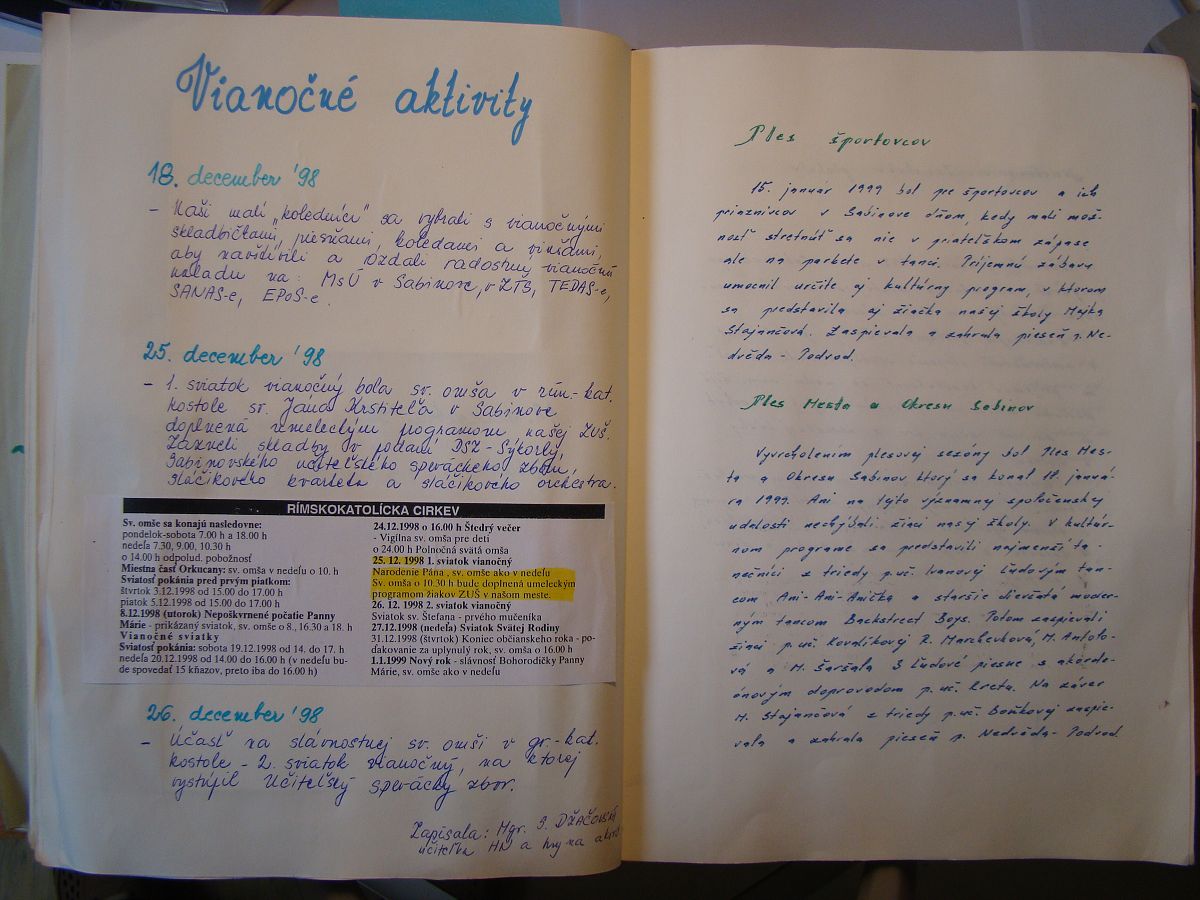 Vianočné aktivity
18. december '98
- Naši malí „koledníci" sa vybrali s vianočnými
skladbičkami, piesňami, koledami a vinšami,
aby navštívili a rozdali radostnú vianočnú
náladu na: MsÚ v Sabinove, v ZTS, TEDAS-e,
SANAS-e, EPoS-e.
25. december '98
- 1. sviatok vianočný bola sv. omša v rím.-kat.
kostole sv. Jána Krstiteľa v Sabinove
doplnená umeleckým programom našej ZUŠ.
Zazneli skladby v podaní DSZ - Sýkorky,
Sabinovského učiteľského speváckeho zboru,
sláčikového kvarteta a sláčikového orchestra.
RÍMSKOKATOLÍCKA CIRKEV
Sv. omše sa konajú nasledovne:
pondelok-sobota 7.00 h a 18.00 h
nedeľa 7.30, 9.00, 10.30 h
o 14.00 h odpolud. pobožnosť
Miestna časť Orkucany: sv. omša v nedeľu o 10. h
Sviatosť pokánia pred prvým piatkom:
štvrtok 3.12.1998 od 15.00 do 17.00 h
piatok 5.12.1998 od 15.00 do 17.00 h
8.12.1998 (utorok) Nepoškvrnené počatie Panny
Márie - prikázaný sviatok, sv. omše o 8., 16.30 a 18. h
Vianočné sviatky
Sviatosť pokánia: sobota 19.12.1998 od 14. do 17. h
nedeľa 20.12.1998 od 14.00 do 16.00 h (v nedeľu bu-
de spovedať 15 kňazov, preto iba do 16.00 h)
24.12.1998 o 16.00 h Štedrý večer
- Vigílna sv. omša pre deti
o 24.00 h Polnočná svätá omša
25. 12. 1998 1. sviatok vianočný
Narodenie Pána , sv. omše ako v nedeľu
Sv. omša o 10.30 h bude doplnená umeleckým
programom žiakov ZUŠ v našom meste.
26. 12. 1998 2. sviatok vianočný
Sviatok sv. Štefana - prvého mučeníka
27.12.1998 (nedeľa) Sviatok Svätej Rodiny
31.12.1998 (štvrtok) Koniec občianskeho roka - po-
ďakovanie za uplynulý rok, sv. omša o 16.00 h
1.1.1999 Nový rok - slávnosť Bohorodičky Panny
Márie, sv. omše ako v nedeľu
26. december '98
- Účasť na slávnostnej sv. omši v gr.-kat.
kostole - 2. sviatok vianočný, na ktorej
vystúpil Učiteľský spevácky zbor.
Zapísala: Mgr. S. DŽAČOVSKÁ
učiteľka HN a hry na
Ples športovcov
15. január 1999 bol pre športovcov a ich
priaznivcov v Sabinove dňom, kedy mali mož-
nosť stretnúť sa nie v priateľskom zápase
ale na parkete v tanci. Príjemnú zábavu
umocnil určite aj kultúrny program, v ktorom
sa predstavila aj žiačka našej školy Majka
Stajančová. Zaspievala a zahrala pieseň p. Ne-
dvěda - Podvod.
Ples Mesta a Okresu Sabinov
Vyvrcholením plesovej sezóny bol Ples Mes-
ta a Okresu Sabinov ktorý sa konal 17. januá-
ra 1999. Ani na tejto významnej spoločenskej
udalosti nechýbali žiaci našej školy. V kultúr-
nom programe sa predstavili najmenší ta-
nečníci z triedy p.uč. Ivanovej ľudovým tan-
com Ani-Ani-Anička a staršie dievčatá moder-
ným tancom Backstreet Boys. Potom zaspievali
žiaci p.uč. Kovalíkovej R. Marchevková, M. Antoto-
vá a M. Šaršala 3 ľudové piesne s akorde-
ónovým doprovodom p. uč. Kreta. Na záver
M. Stajančová z triedy p.uč. Boňkovej zaspie-
vala a zahrala pieseň p. Nedvěda - Podvod